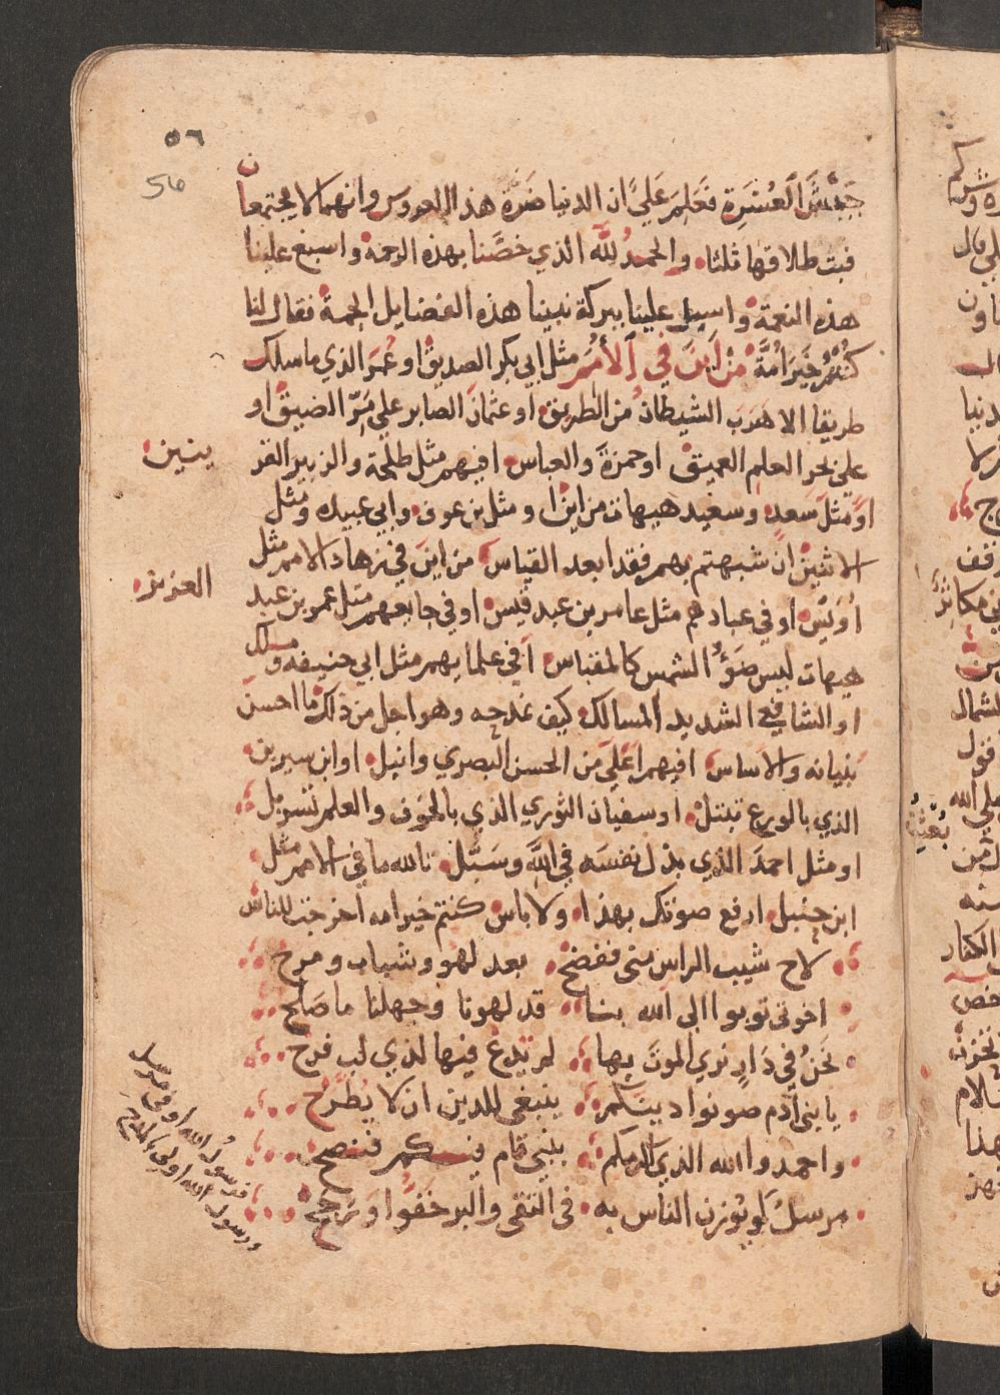 ٥٦
56
جَيْشَ العُسْرَة فعَلِمَ عَليٌ ان الدنيا ضَرَّة هذا العروس وانهما لا يجتمعان
فبت طلاقها ثلثا والحمدُ للّه الذي خصَّنا بهذه الرحمة واسبغ علينا
هذه النعمة واسبل علينا ببركة نبينا هذه الفضايل الجمة فقال لنا
كُنْتُمْ خَيْرَ امُةَّ مِنْ اَينَ في الأُمَمِ مثل ابي بكر الصديق او عُمَر الذي ما سلك
طريقا الا هَرَبَ الشيطان من الطريق او عثمان الصابر علي مَرّ الضيق او
علي بحر العلم العميق او حمزة والعباس افيهم مثل طلحة والزبير القر
ينين
او مثل سَعدٍ وسعيد هيهات من اين او مثل بن عوف وابي عبيده ومثل
الاثنين ان شبهتم بهم فقد ابعد القياس من اين في زهاد الامم مثل
اُوَيْس او في عبادهم مثل عامر بن عبد قيس او في مثل عمر بن عبد
العزيز
هيهات ليس ضَوْءُ الشمس كالمقباس افي علمايهم مثل ابي حنيفه ومالك
او الشافعي الشديد المسالك كيف نمدحه وهو اجل من ذلك ما احسن
بنيانه والاساس افيهم اعلي من الحسن البصري وانبل او ابن سيرين
الذي بالورع تبتل او سفيان الثوري الذي بالخوف والعلم تسربل
او مثل احمدَ الذي بذل نفسَه في اللّه وسَبَّل تالله ما في الامم مثل
ابن حنبل ارفع صوتك بهذا ولا باس كنتم خير امه اخرجت للناس
لاح شيب الراس مني ففضح بعد لهو وشباب ومرح
اخوتي توبوا الي الله بنا قد لهونا وجهلنا ما صلح
نحنُ في دَارٍ نري الموتَ بها لم يدع فيها لذي لب فرح
يا بني آدم صونوا دينكم ينبغي للدين ان لا يُطَّرَح
واحمدوا الله الذي اكرمكم بنبي قام فيكم فنصح
مرسلٌ لو يُوزن الناس به في التقي والبر خَفّوا وَرَجَح
فرسول الله اولي
ورسول الله اولي بالمدح